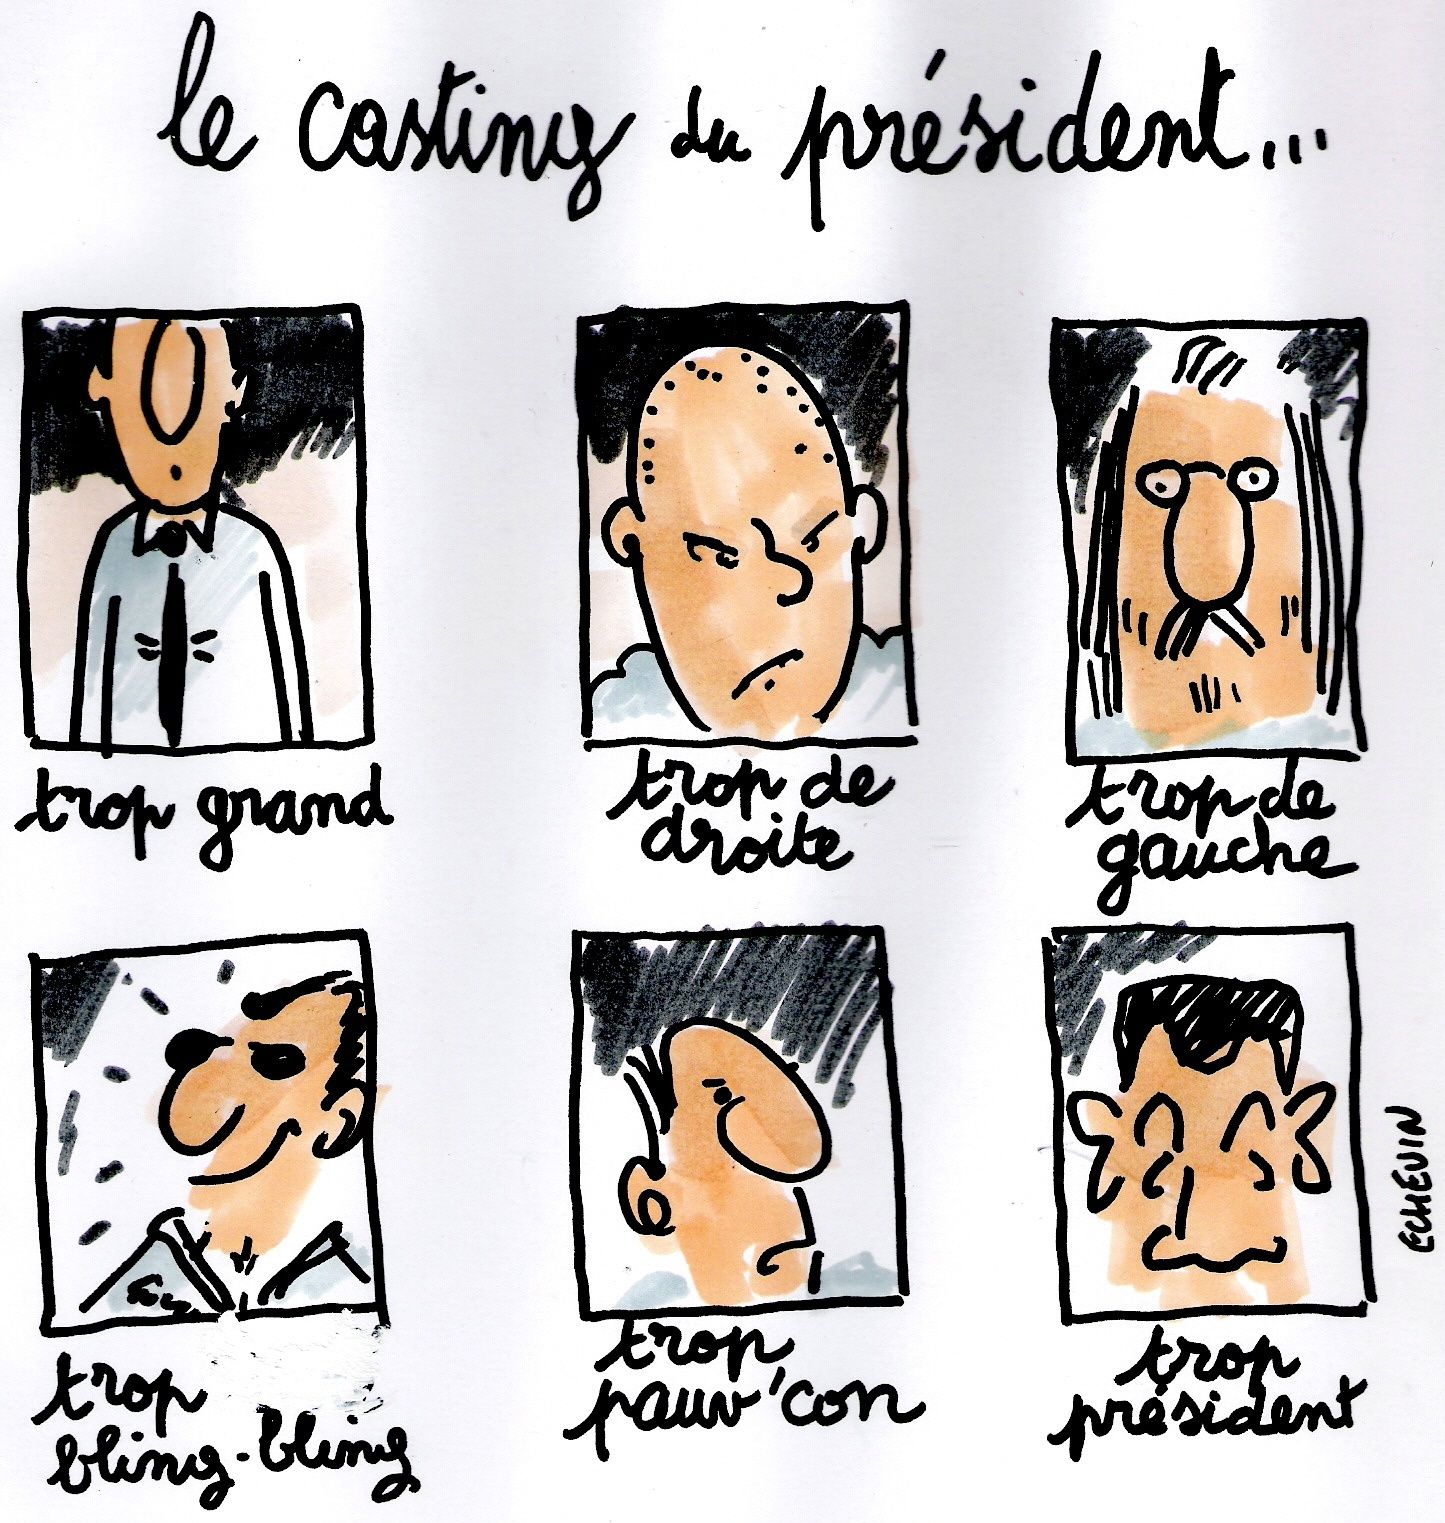 le casting du président...
trop grand
trop de
droite
trop de
gauche
trop
bling-bling
trop
pauv'con
trop
président
ECHEVIN